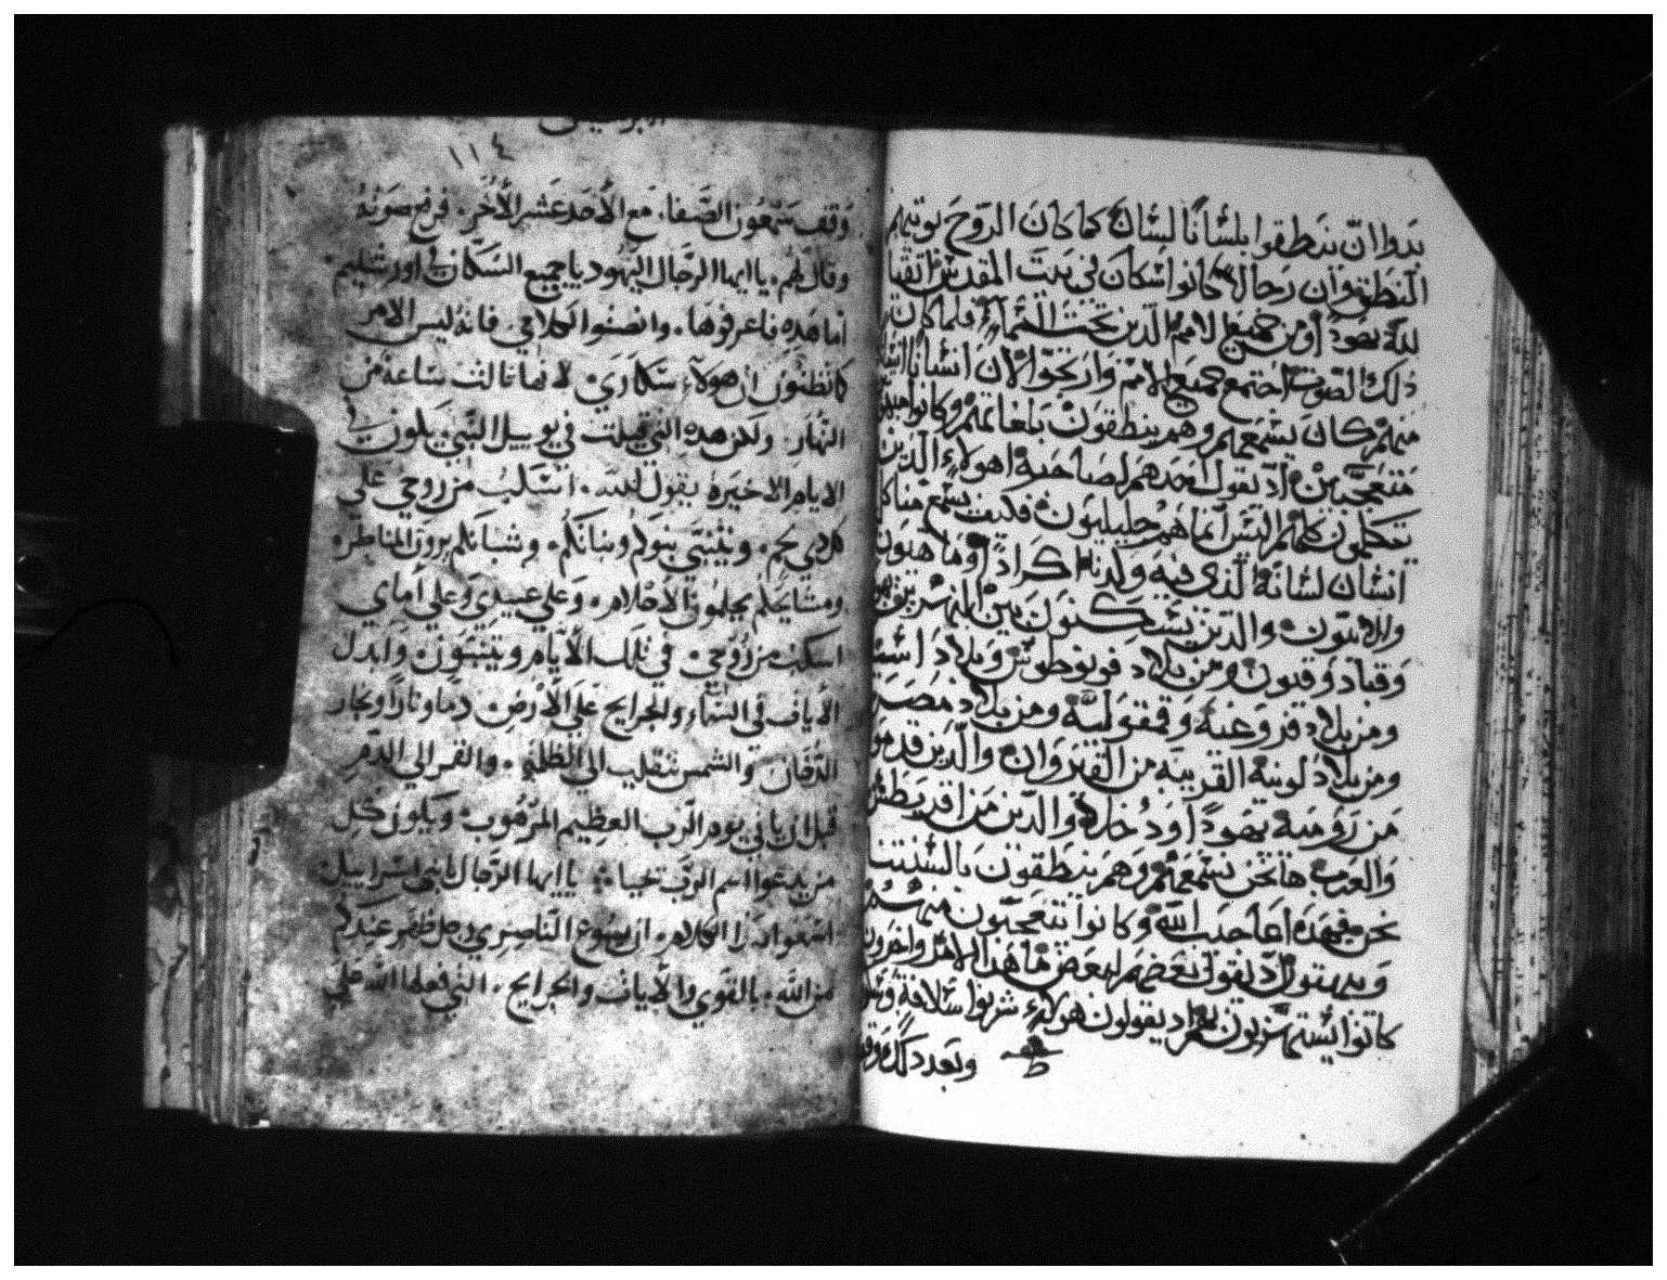 بدوا ان ينطقوا بلسانا لسان كما كان الروح يوتيهم
النطق وان رجالا كانوا اسكان في بيت المقدس اتقيا
لله يهودا ومن جميع الامم الذين تحت السماء فلما كان
ذلك الصوت اجتمع جميع الامم وارتجوا لان انسانا انسانا
منهم كان يسمعهم وهم ينطقون بلغاتهم وكانوا
متعجبين اذ يقول احدهم لصاحبه اهولاء الذين
يتكلمون كلهم اليس انما هم جليليون فكيف يسمع منا كل
انسان لسانه الذي فيه ولدنا اكرادا وماهيون
والانيون والذين يسكنون بين النهرين يهود
وقبادوقيون ومن بلاد فونطوس وبلاد اسيا
ومن بلاد فروغية وفمفولية ومن بلاد مصر
ومن بلاد لوبية القريبة من القيروان والذين قدموا
من رومية يهودا ودخلاء والذين من اقريطش
والعرب ها نحن نسمعهم وهم ينطقون بالسنتنا
نحن بهذه اعاجيب الله وكانوا يتعجبون منهم كلهم
ويبهتون اذ يقول بعضهم لبعض ما هذا الامر واخرون
كانوا يستهزيون بهم اذ يقولون هولاء شربوا سلافة
وبعد ذلك وقف
١١٤
وقف شمعون الصفا. مع الاحد عشر الاخر. فرفع صوته
وقال لهم. يا ايها الرجال اليهود يا جميع السكان في اورشليم.
اما هذه فاعرفوها. وانصتوا لكلامي. فانه ليس الامر
كما تظنون ان هولاء سكارى. لانها تالت ساعة من
النهار. ولكن هذه التي قيلت في يوييل النبي. يكون في
الايام الاخيرة يقول الله. اسكب من روحي على
كل دي لحم. ويتنبى بنوكم وبناتكم. وشبانكم يرون المناظر.
ومشايخكم يحلمون الاحلام. وعلى عبيدي وعلى اماي
اسكب من روحي. في تلك الايام ويتنبون. وابدل
الايات في السماء والجرايح على الارض. دما ونارا وبخار
الدخان. والشمس تنقلب الى الظلمة. والقمر الى الدم
قبل ان ياتي يوم الرب العظيم المرهوب. ويكون كل
من يدعوا اسم الرب نحيا. يا ايها الرجال بني اسراييل
اسمعوا هذا الكلام. ان يسوع الناصري رجل ظهر عندكم
من الله. بالقوى والايات والجرايح. التي فعلها الله على